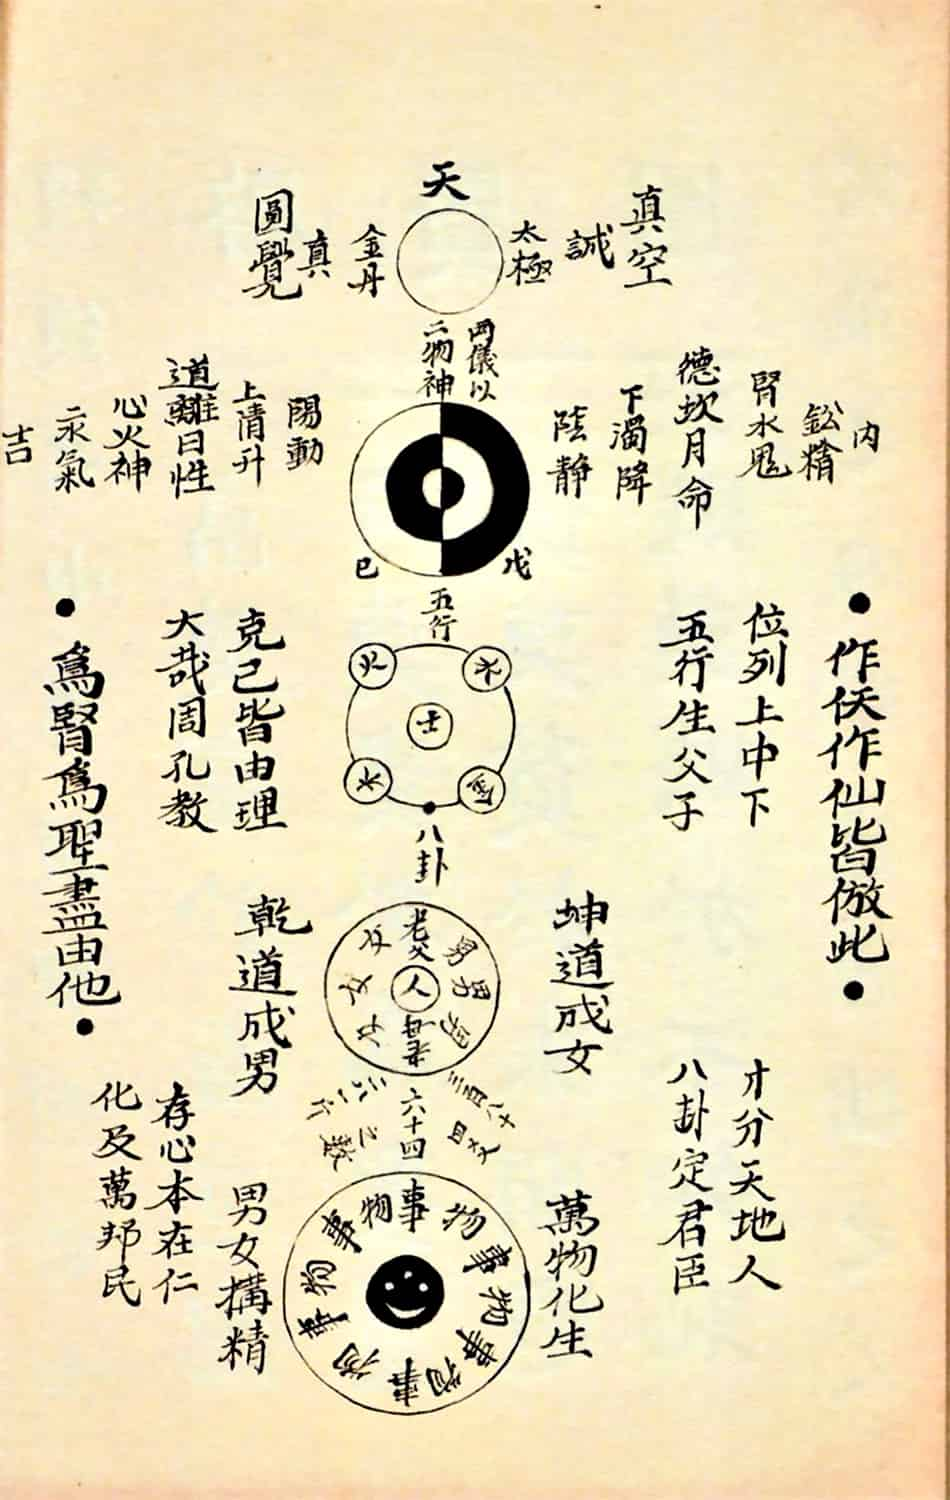 天
真空
誠
太極
金丹
真
圓覺
兩儀以
二物神
内
鈆精
德坎月命
下濁降
陰静
戊
己
陽動
上清升
道離日性
心火神
汞氣
吉
五行
火
土
金
•作仸作仙皆倣此•
位列上中下
五行生父子
克己皆由理
大哉周孔教
•爲賢爲聖盡由他•
八卦
坤道成女
老父
男
男
男
人
女
女
女
乾道成男
才分天地人
八卦定君臣
三百八十四爻
六十四
之數
存心本在仁
化及萬邦民
萬物化生
事物事物事物事物事物事物
男女搆精